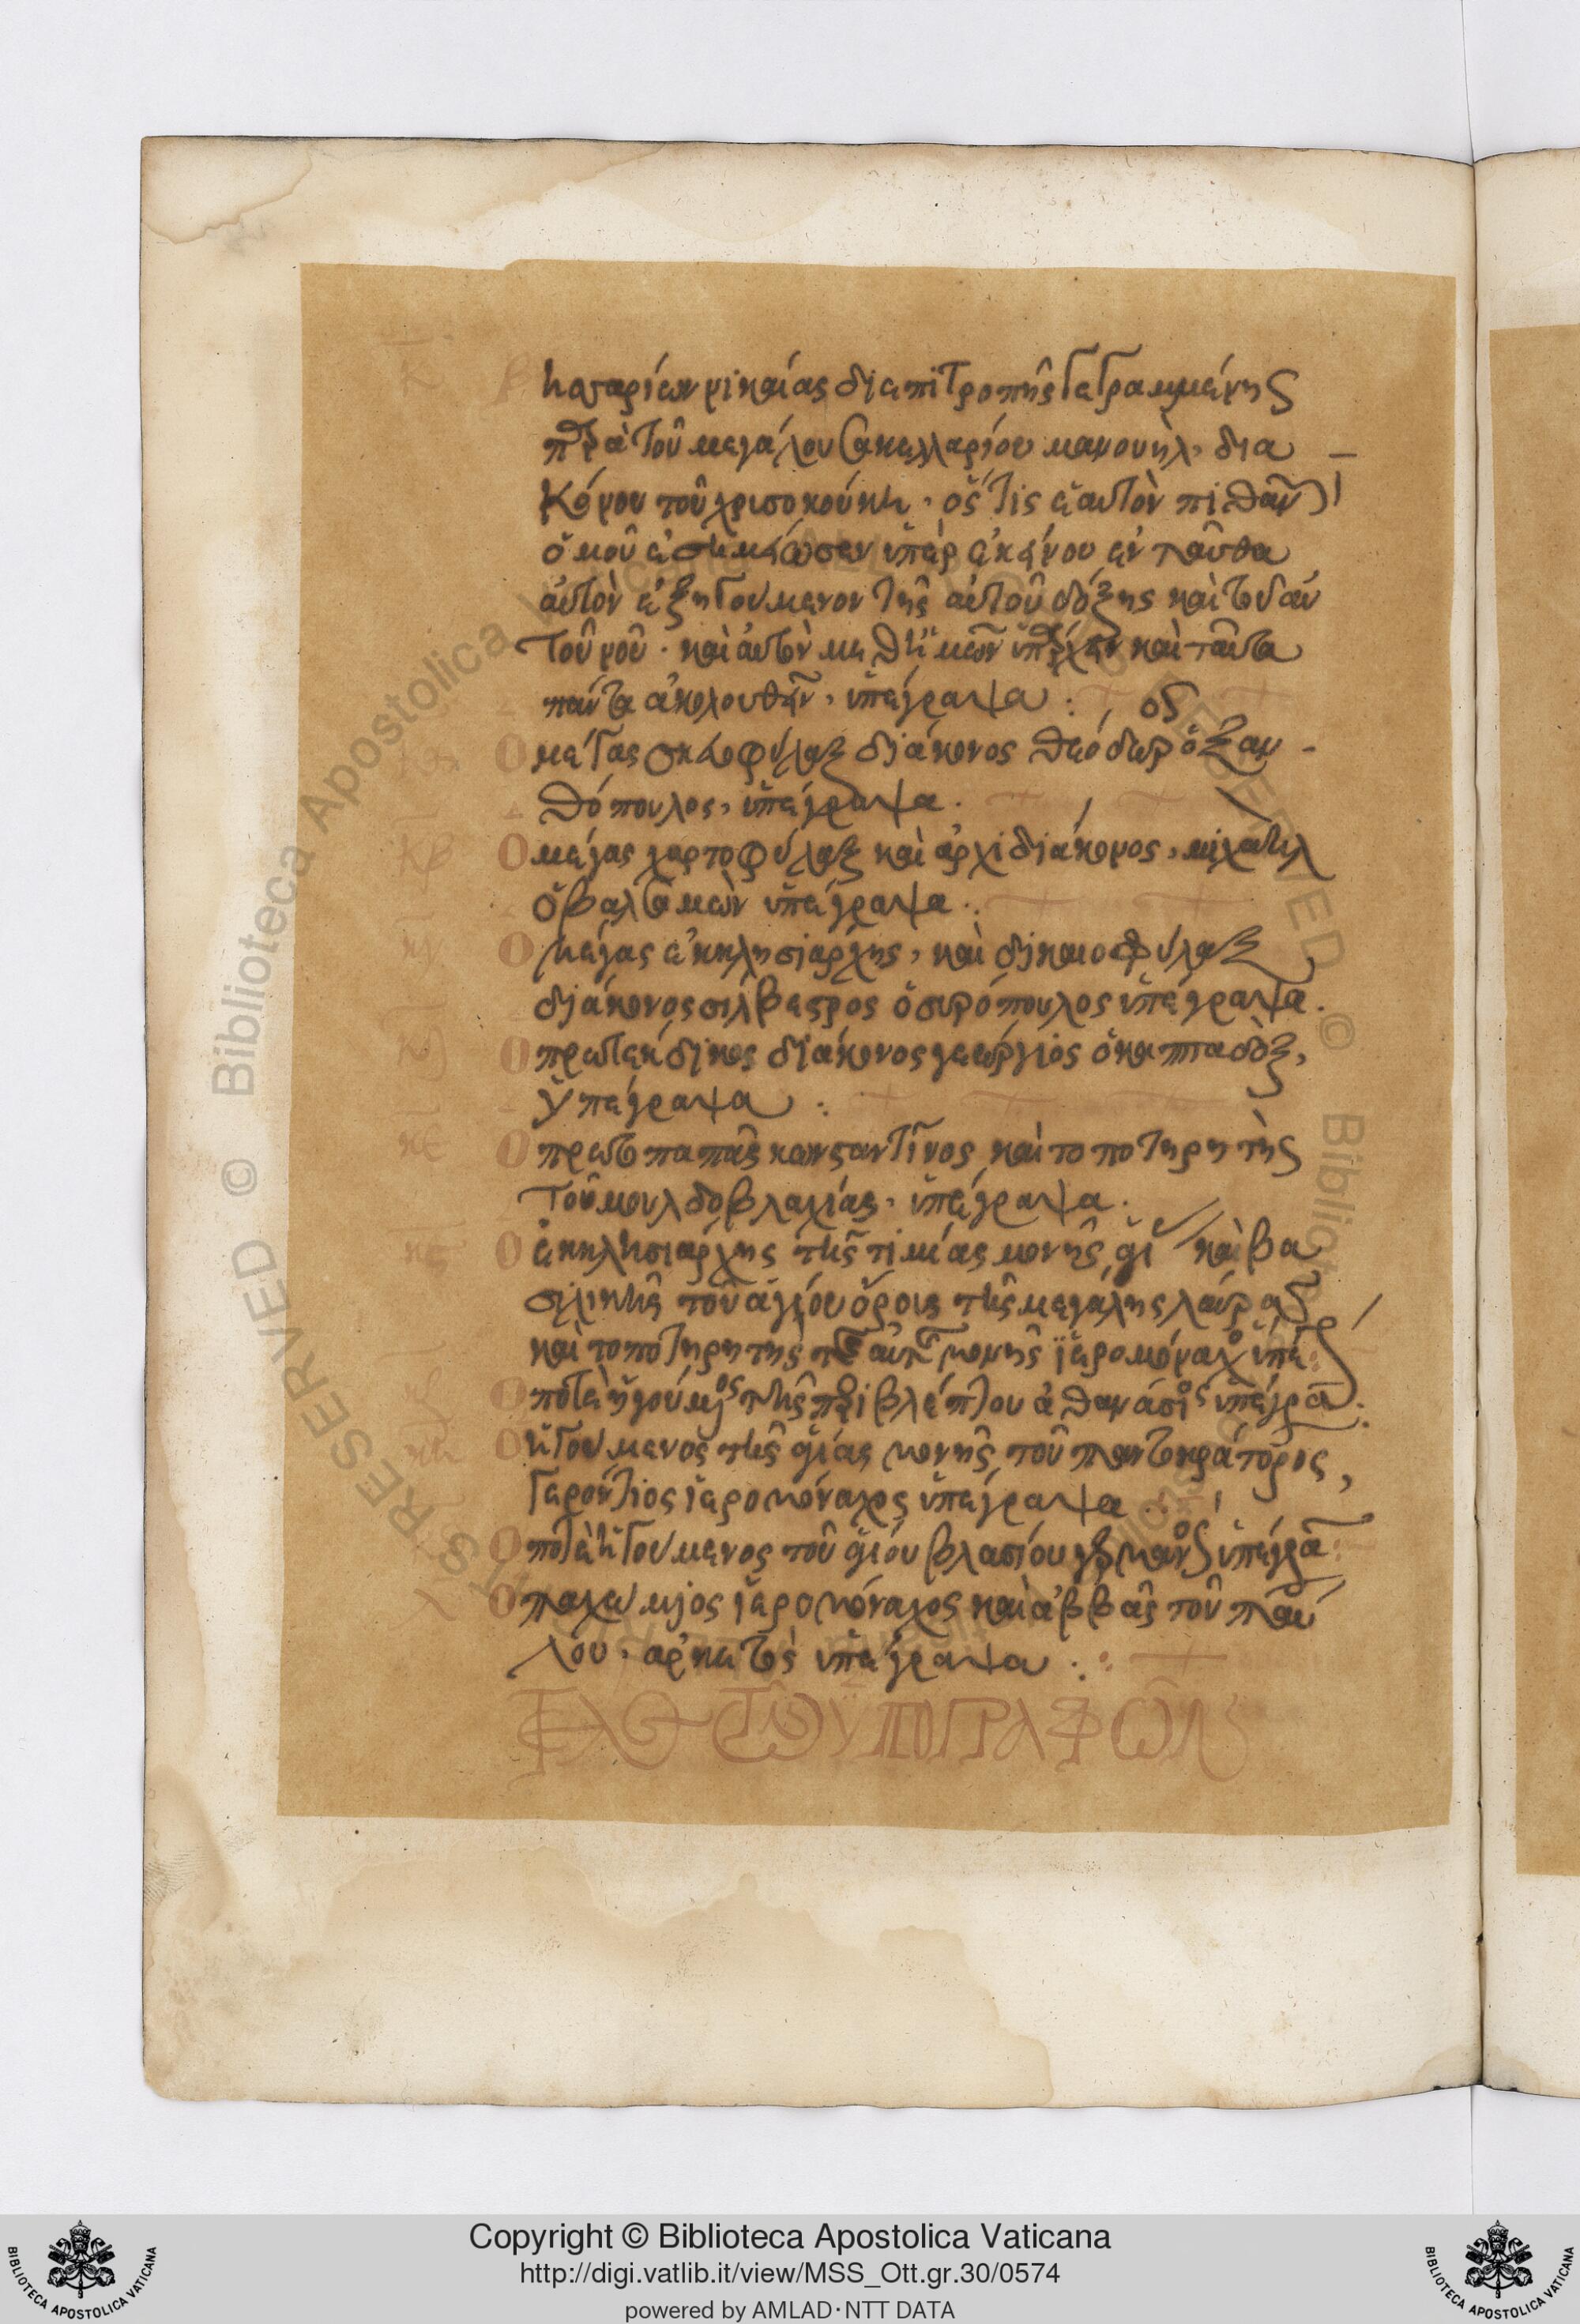 κ Βησσαρίων νικαίας δι επιτροπῆς γεγραμμένης
παρὰ τοῦ μεγάλου σακελλαρίου μανουὴλ, δια
κόνου τοῦ χρισοκούκη, ὅς τις ἑαυτὸν πιθαν
ὁμοῦ ἐσημείωσεν ὑπὲρ ἐκείνου ἐνταῦθα
αὐτὸν ἐξηγούμενον τῆς αὐτοῦ δόξης καὶ τοῦ ἑαυ
τοῦ νοῦ. καὶ αὐτὸν μεθ ἡμῶν ὑπάρχειν καὶ ταῦτα
πάντα ἀκολουθεῖν, ὑπέγραψα :
κα Ο μέγας σκευοφύλαξ διάκονος θεόδωρος ὁ ξαν
θόπουλος, ὑπέγραψα.
κβ Ο μέγας χαρτοφύλαξ καὶ ἀρχιδιάκονος, μιχαὴλ
ὁ βαλσαμὼν ὑπέγραψα .
κγ Ο μέγας ἐκκλησιάρχης, καὶ δικαιοφύλαξ
διάκονος σιλβεστρος ὁ συρόπουλος ὑπέγραψα.
κδ Ο πρωτέκδικος διάκονος γεώργιος ὁ καππαδοξ,
ὑπέγραψα :
κε Ο πρωτοπαπᾶς κωνσταντῖνος καὶ τοποτηρητὴς
τοῦ μουλδοβλαχίας, ὑπέγραψα.
κϛ Ο ἐκκλησιάρχης τῆς τιμίας μονῆς ἁγί καὶ βα
σιλικῆς τοῦ ἁγίου ὄρους τῆς μεγάλης λαύρας
καὶ τοποτηρητης της αὐτ μονῆς ἱερομόναχος ὑπέγ
κζ Ο ποτὲ ἡγούμενος τῆς περιβλέπτου ἀθανάσιος ὑπέγρα
κη Ο ἡγουμενος τῆς ἁγίας μονῆς τοῦ παντοκράτορος,
γερόντιος ἱερομόναχος ὑπέγραψα
Ο ποτὲ ἡγουμενος τοῦ ἁγίου βλασίου γερμανὸς ὑπέγρα
λ Ο παχωμιος ἱερομόναχος καὶ ἀββᾶς τοῦ παύ
λου, αρκετὸς ὑπέγραψα :
ΤΕΛΟϹ ΤΩΝ ΥΠΟΓΡΑΦΩΝ
Copyright © Biblioteca Apostolica Vaticana
http://digi.vatlib.it/view/MSS_Ott.gr.30/0574
powered by AMLAD·NTT DATA
BIBLIOTECA APOSTOLICA VATICANA
BIBLIOTECA APOSTOLICA VATICANA